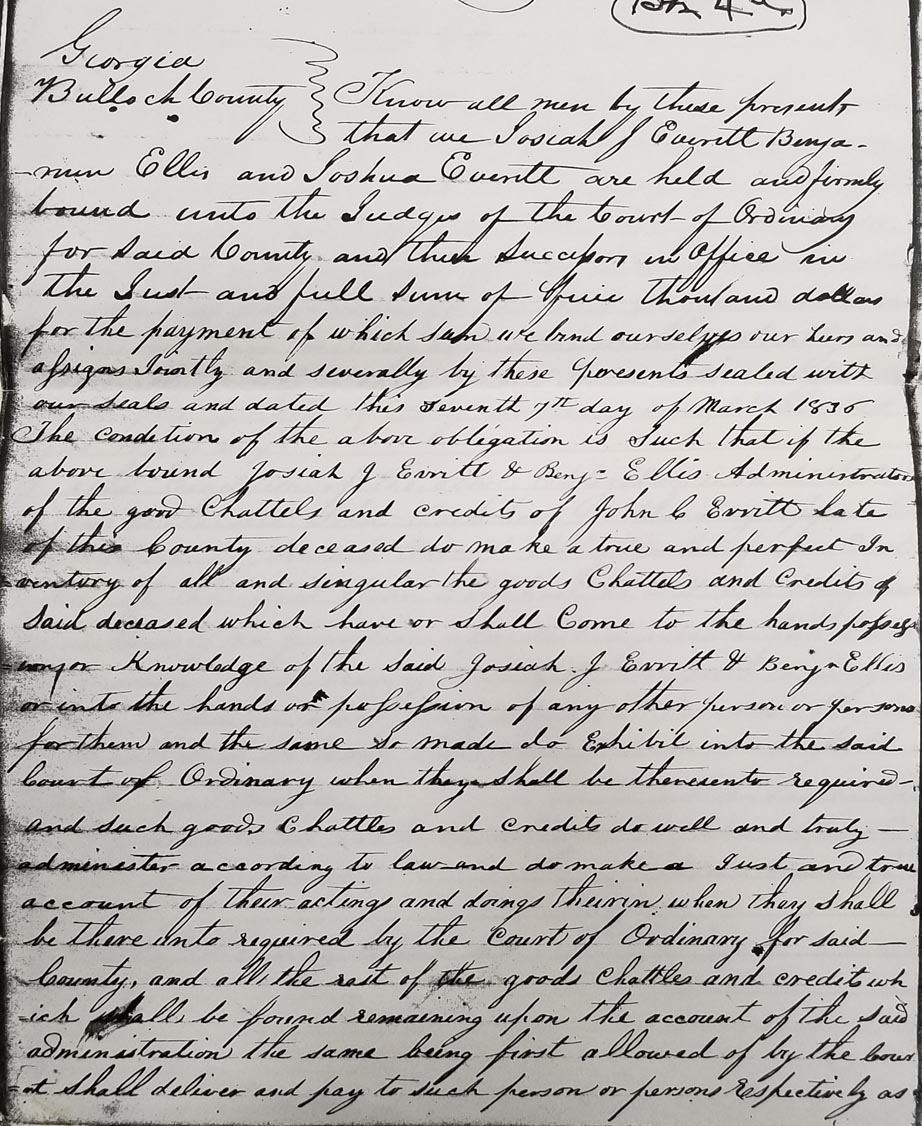 Georgia
Bulloch County Know all men by these presents
that we Josiah J Everitt Benja-
min Ellis and Joshua Everitt are held and firmly
bound unto the Judges of the Court of Ordinary
for said County and their Successors in Office in
the Just and full Sum of five thousand dollars
for the payment of which sum we bind ourselves our heirs and
assigns Jointly and severally by these presents sealed with
our seals and dated this seventh 7th day of March 1836
The condition of the above obligation is Such that if the
above bound Josiah J Evritt & Benj= Ellis Administrators
of the good Chattels and credits of John C Evritt late
of this County deceased do make a true and perfect In
ventory of all and singular the goods Chattels and Credits of
Said deceased which have or shall Come to the hands possess
ion or Knowledge of the Said Josiah J Evritt & Benjn Ellis
or into the hands or possession of any other person or persons
for them and the same so made do Exhibit into the said
Court of Ordinary when they shall be thereunto required-
and such goods Chattles and credits do well and truly -
administer according to law and do make a Just and true
account of their actings and doings theirin when they shall
be there unto required by the Court of Ordinary for said -
County, and all the rest of the goods Chattles and credit wh
ich shall be found remaining upon the account of the said
administration the same being first allowed of by the Cour
=t shall deliver and pay to such person or persons Respectively as